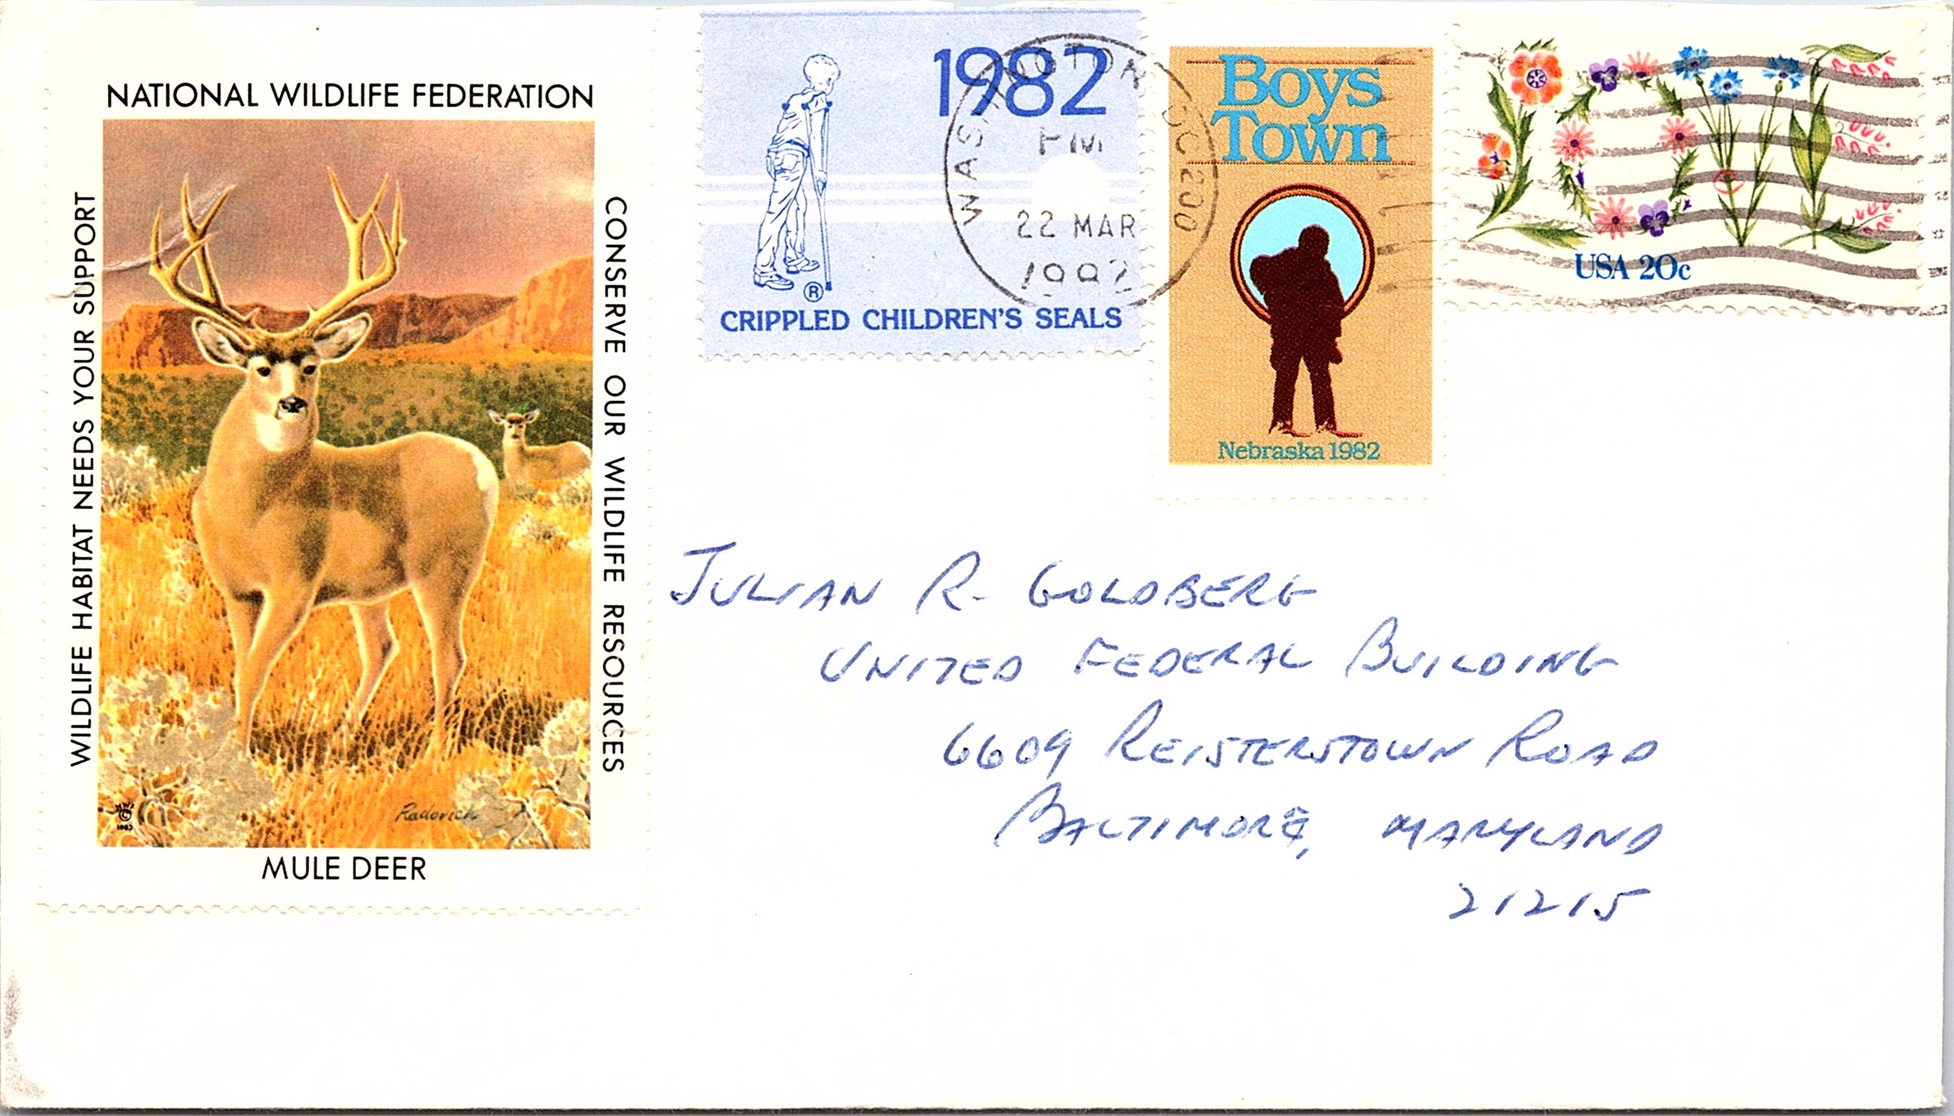 NATIONAL WILDLIFE FEDERATION
WILDLIFE HABITAT NEEDS YOUR SUPPORT
CONSERVE OUR WILDLIFE RESOURCES
Radovich
MULE DEER
1982
®
CRIPPLED CHILDREN'S SEALS
WASHINGTON DC 200
PM
22 MAR
1982
Boys
Town
Nebraska 1982
LOVE
USA 20c
JULIAN R. GOLDBERG
UNITED FEDERAL BUILDING
6609 REISTERSTOWN ROAD
BALTIMORE, MARYLAND
21215